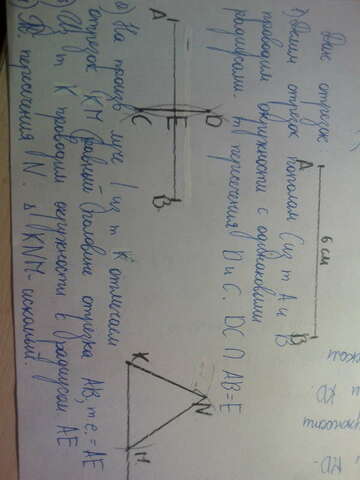 Дан отрезок
A 6 см B
1) Делим отрезок пополам (из т A и B
проводим окружности с одинаковыми
радиусами. В пересечения D и C. DC∩AB=E
A D
E
C B
2) На произв луче l из т K отмечаем
отрезок KM равный половине отрезка AB, т.е. = AE
3) Из т K проводим окружности с радиусом AE
В пересечения N. Δ KNM - искомый.
N
K M